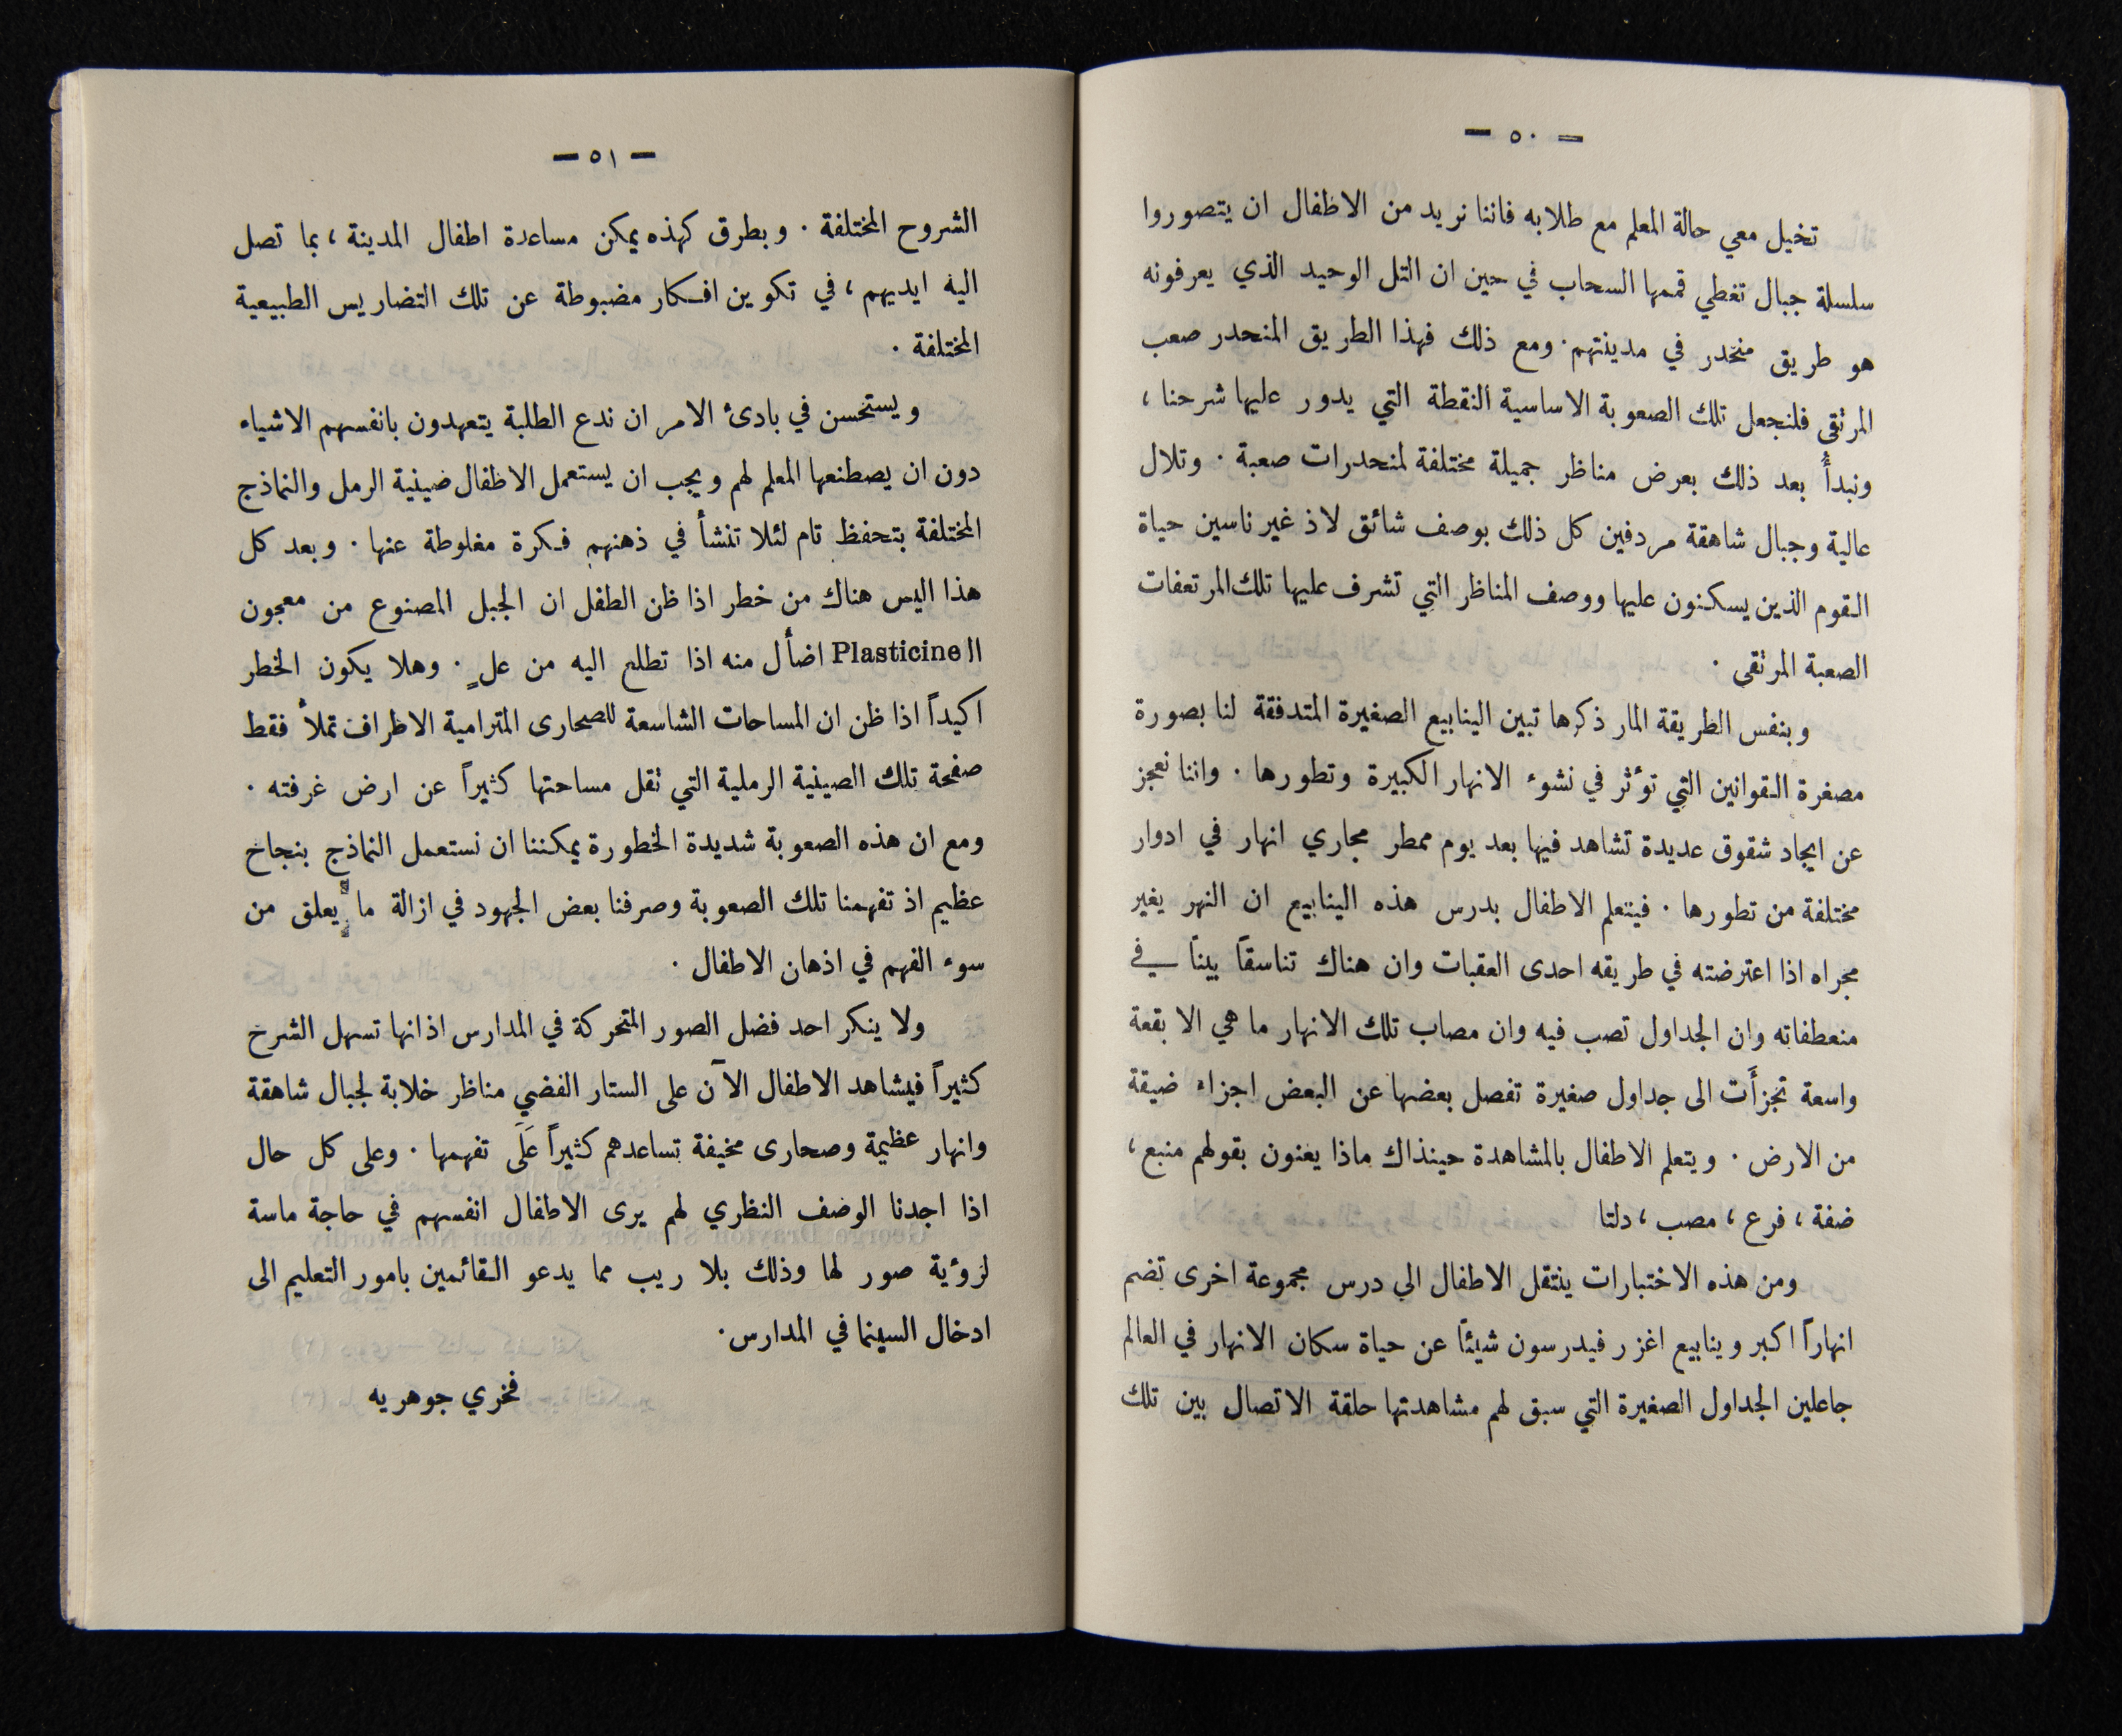 — ٥٠ —
تخيل معي حالة المعلم مع طلابه فاننا نريد من الاطفال ان يتصوروا
سلسلة جبال تغطي قممها السحاب في حين ان التل الوحيد الذي يعرفونه
هو طريق منحدر في مدينتهم . ومع ذلك فهذا الطريق المنحدر صعب
المرتقى فلنجعل تلك الصعوبة الاساسية النقطة التي يدور عليها شرحنا ،
ونبدأ بعد ذلك بعرض مناظر جميلة مختلفة لمنحدرات صعبة . وتلال
عالية وجبال شاهقة مردفين كل ذلك بوصف شائق لاذ غير ناسين حياة
القوم الذين يسكنون عليها ووصف المناظر التي تشرف عليها تلك المرتعفات
الصعبة المرتقى .
وبنفس الطريقة المار ذكرها تبين الينابيع الصغيرة المتدفقة لنا بصورة
مصغرة القوانين التي تؤثر في نشوء الانهار الكبيرة وتطورها . واننا نعجز
عن ايجاد شقوق عديدة تشاهد فيها بعد يوم ممطر مجاري انهار في ادوار
مختلفة من تطورها . فيتعلم الاطفال بدرس هذه الينابيع ان النهر يغير
مجراه اذا اعترضته في طريقه احدى العقبات وان هناك تناسقاً بيناً في
منعطفاته وان الجداول تصب فيه وان مصاب تلك الانهار ما هي الا بقعة
واسعة تجزأَت الى جداول صغيرة تفصل بعضها عن البعض اجزاء ضيقة
من الارض . ويتعلم الاطفال بالمشاهدة حينذاك ماذا يعنون بقولهم منبع ،
ضفة ، فرع ، مصب ، دلتا
ومن هذه الاختبارات ينتقل الاطفال الي درس مجموعة اخرى تضم
انهاراً اكبر وينابيع اغزر فيدرسون شيئاً عن حياة سكان الانهار في العالم
جاعلين الجداول الصغيرة التي سبق لهم مشاهدتها حلقة الاتصال بين تلك
— ٥١ —
الشروح المختلفة . وبطرق كهذه يمكن مساعدة اطفال المدينة ، بما تصل
اليه ايديهم ، في تكوين افكار مضبوطة عن تلك التضاريس الطبيعية
المختلفة .
ويستحسن في بادئ الامر ان ندع الطلبة يتعهدون بانفسهم الاشياء
دون ان يصطنعها المعلم لهم ويجب ان يستعمل الاطفال صينية الرمل والنماذج
المختلفة بتحفظ تام لئلا تنشأ في ذهنهم فكرة مغلوطة عنها . وبعد كل
هذا اليس هناك من خطر اذا ظن الطفل ان الجبل المصنوع من معجون
الـ Plasticine اضأل منه اذا تطلع اليه من علٍ . وهلا يكون الخطر
اكيداً اذا ظن ان المساحات الشاسعة للصحارى المترامية الاطراف تملأ فقط
صفحة تلك الصينية الرملية التي تقل مساحتها كثيراً عن ارض غرفته .
ومع ان هذه الصعوبة شديدة الخطورة يمكننا ان نستعمل النماذج بنجاح
عظيم اذ تفهمنا تلك الصعوبة وصرفنا بعض الجهود في ازالة ما يعلق من
سوء الفهم في اذهان الاطفال .
ولا ينكر احد فضل الصور المتحركة في المدارس اذ انها تسهل الشرح
كثيراً فيشاهد الاطفال الآن على الستار الفضي مناظر خلابة لجبال شاهقة
وانهار عظيمة وصحارى مخيفة تساعدهم كثيراً عَلَى تفهمها . وعلى كل حال
اذا اجدنا الوصف النظري لهم يرى الاطفال انفسهم في حاجة ماسة
لرؤية صور لها وذلك بلا ريب مما يدعو القائمين بامور التعليم الى
ادخال السينما في المدارس .
فخري جوهريه